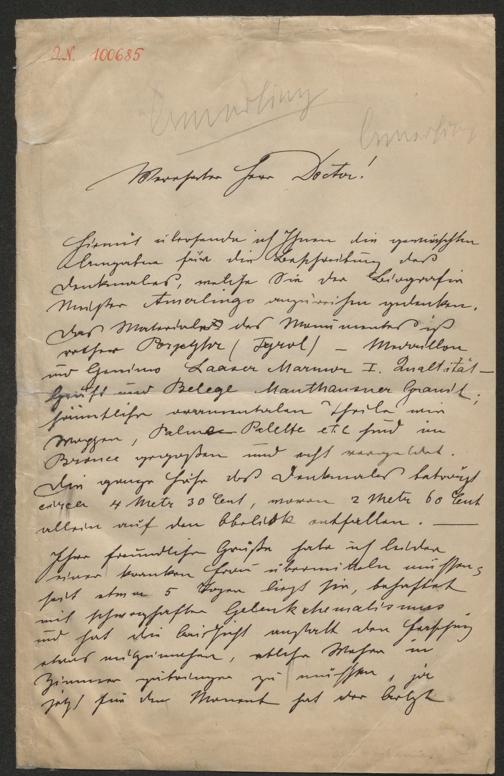 I.N. 100685
Amerling
Amerling
Verehrter Herr Doctor!
Hiemit übersende ich Ihnen die gewünschten
Angaben für die Beschreibung des
Denkmales, welche Sie der Biografie
Meister Amerlings anzureihen gedenken.
Das Materiale des Monumentes ist
rother Porphyr (Tyrol) – Medaillon
und Genius Laaser Marmor I. Qualität –
Gruft und Belege Mauthausner Granit;
sämmtliche ornamentalen Theile wie
Wappen, Palme Palette etc sind in
Bronce gegoßen und echt vergoldet.
Die ganze Höhe des Denkmales beträgt
circa 4 Metr 30 Cent, wovon 2 Metr 60 Cent
allein auf den Obelisk entfallen. —
Ihre freundlichen Grüße habe ich leider
einer kranken Frau übermitteln müssen;
seit etwa 5 Tagen liegt sie, behaftet
mit schmerzhaften Gelenksrheumatismus
und hat die Aussicht anstatt den Fasching
etwas mitzumachen, etliche Wochen im
Zimmer zubringen zu müssen, ja
jetzt für den Moment hat der Arzt